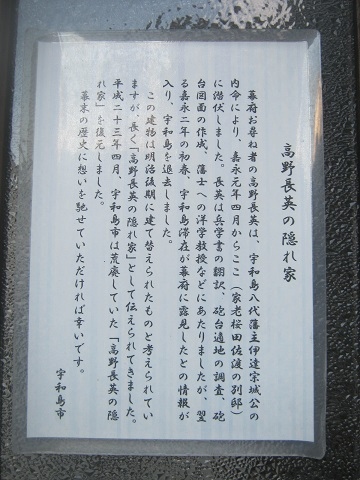 高野長英の隠れ家
幕府お尋ね者の高野長英は、宇和島八代藩主伊達宗城公の
内命により、嘉永元年四月からここ（家老桜田佐渡の別邸）
に潜伏しました。長英は兵学書の翻訳、砲台適地の調査、砲
台図面の作成、藩士への洋学教授などにあたりましたが、翌
る嘉永二年の初春、宇和島滞在が幕府に露見したとの情報が
入り、宇和島を退去しました。
この建物は明治後期に建て替えられたものと考えられてい
ますが、長く「高野長英の隠れ家」として伝えられてきました。
平成二十三年四月、宇和島市は荒廃していた「高野長英の隠
れ家」を復元しました。
幕末の歴史に想いを馳せていただければ幸いです。
宇和島市